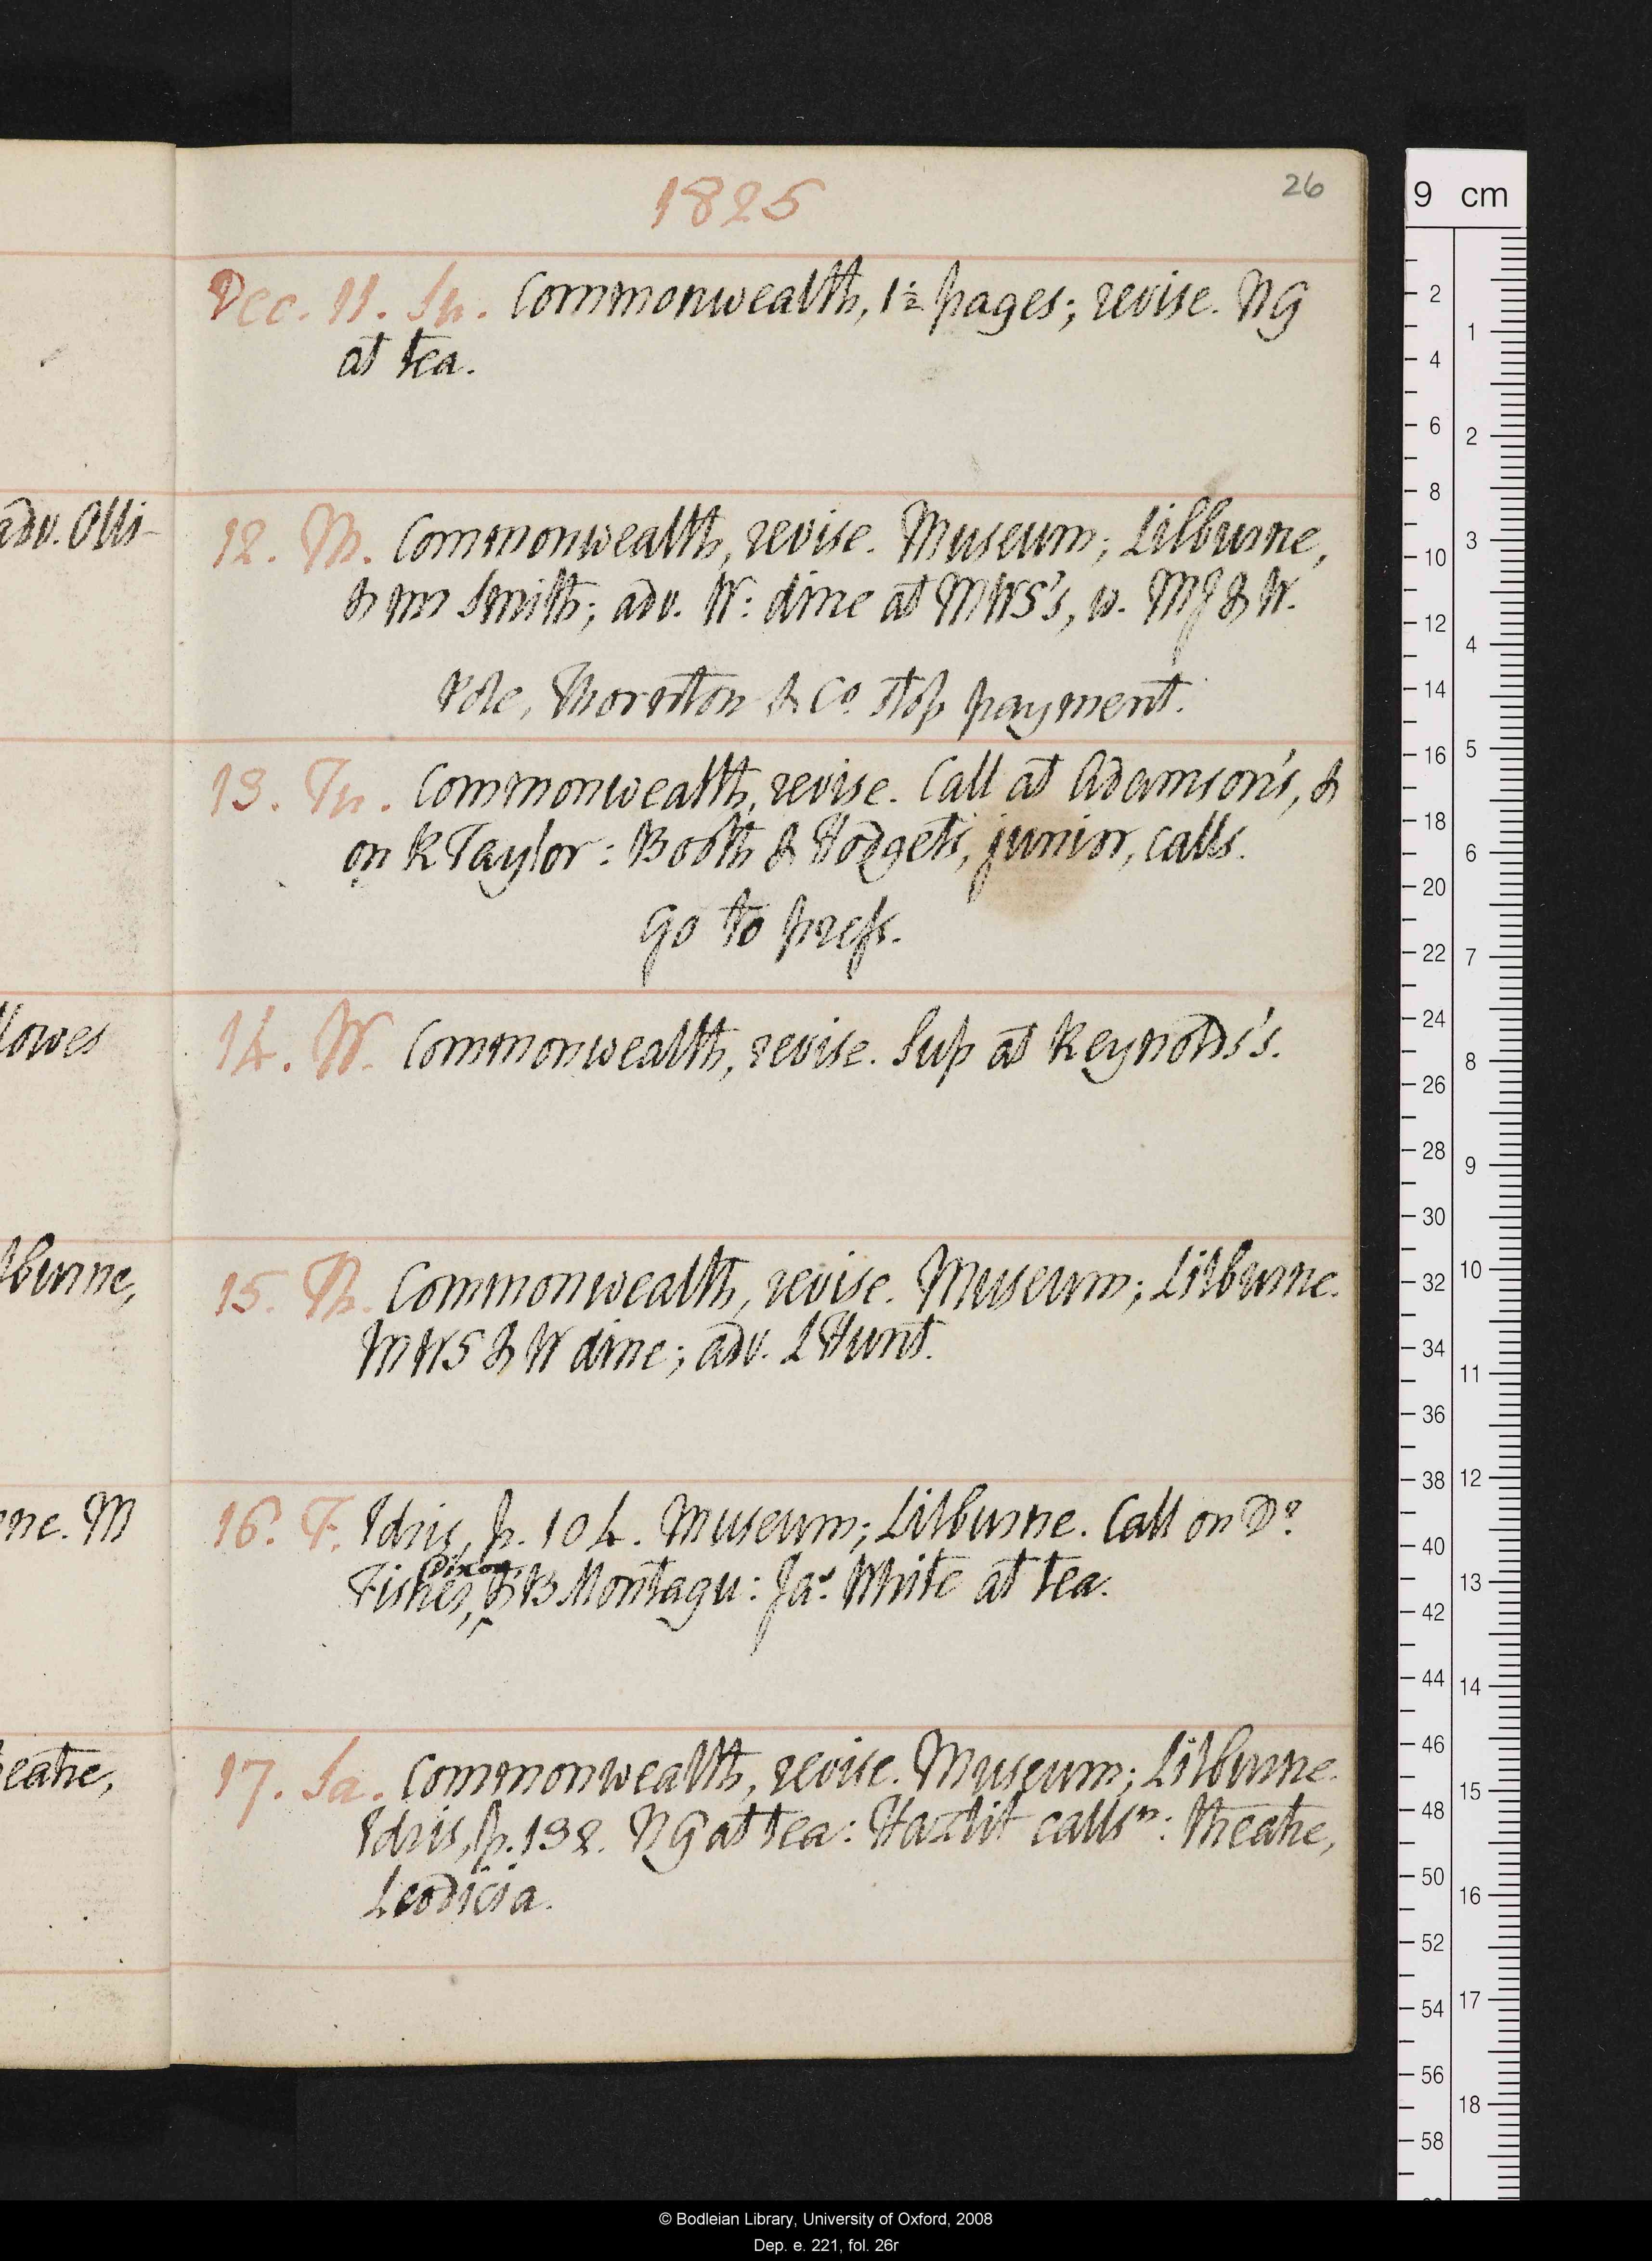 1825
26
Dec. 11. Su. Commonwealth, 1½ pages; revise. NG
at tea.
adv. Olli-
12. M. Commonwealth, revise. Museum; Lilburne,
& mrs Smith; adv. W: dine at MWS's, w. MJ & W.
Pole, Thornton & Co. stop payment.
13. Tu. Commonwealth, revise. Call at Adamson's, &
on R Taylor: Booth & Hodgets, junior, calls.
Go to press.
lowes
14. W. Commonwealth, revise. Sup at Reynolds's.
lburne,
15. Th. Commonwealth, revise. Museum; Lilburne.
MWS & W dine; adv. LHunt.
ne. M
16. F. Idris, p. 104. Museum; Lilburne. Call on Dr
Dixon
Fisher, & B Montagu: Jas White at tea.
eatre,
17. Sa. Commonwealth, revise. Museum; Lilburne.
Idris, p. 132. NG at tea: Hazlit calls n: Theatre,
Leodicia.
9 cm
2
1
4
6
2
8
10
3
12
4
14
16
5
18
6
20
22
7
24
8
26
28
9
30
32
10
34
11
36
38
12
40
13
42
44
14
46
15
48
50
16
52
54
17
56
18
58
© Bodleian Library, University of Oxford, 2008
Dep. e. 221, fol. 26r